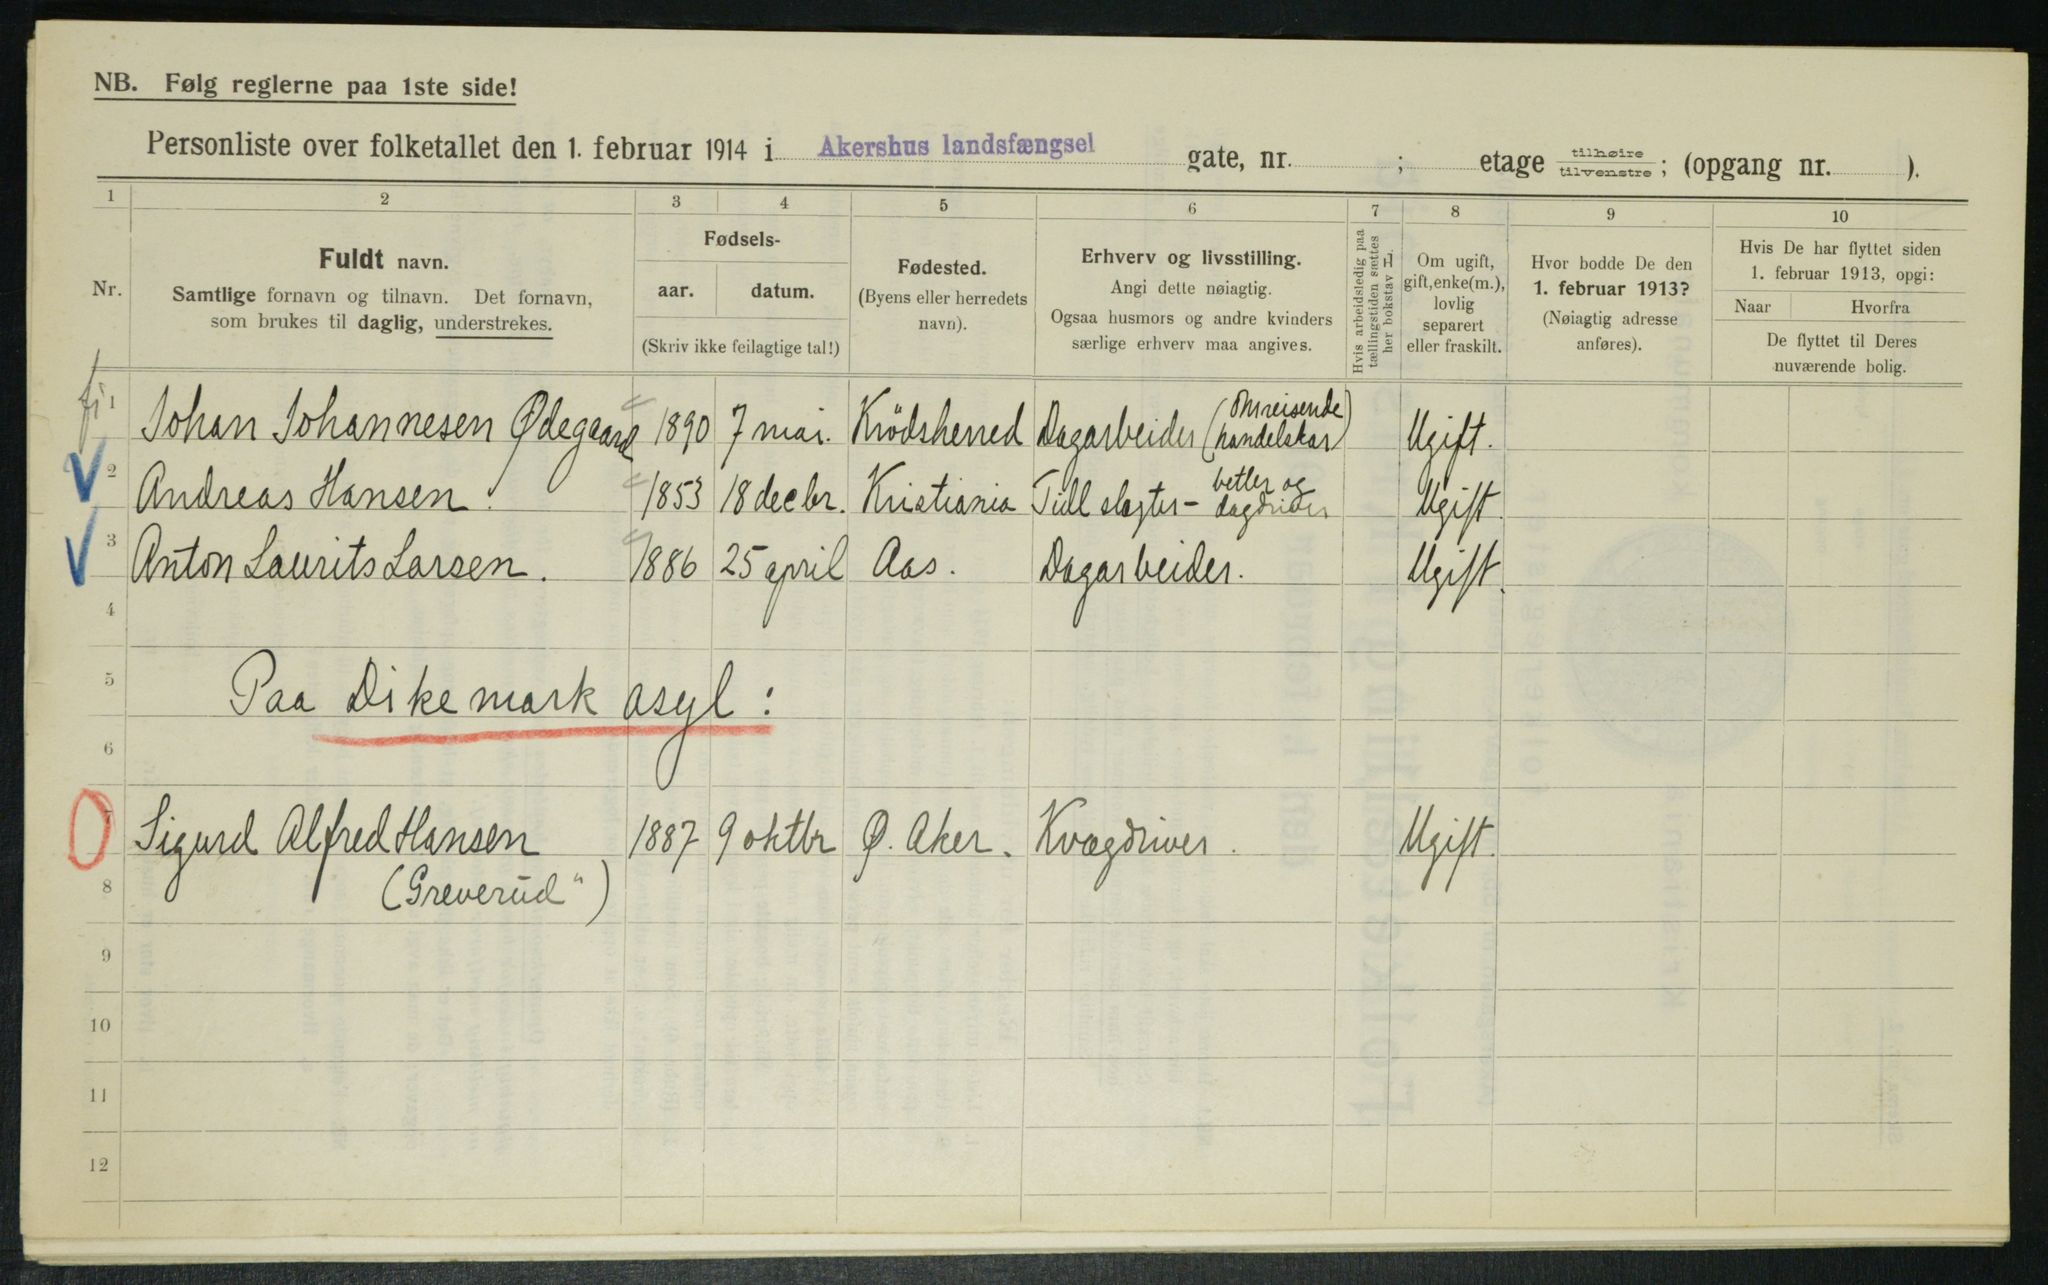 NB. Følg reglerne paa 1ste side!
Personliste over folketallet den 1. februar 1914 i Akershus landsfængsel gate, nr. ; etage tilhøire tilvenstre ; (opgang nr. ).
1 2 3 4 5 6 7 8 9 10
Nr.
Fuldt navn.
Samtlige fornavn og tilnavn. Det fornavn,
som brukes til daglig, understrekes.
Fødsels-
aar. datum.
(Skriv ikke feilagtige tal!)
Fødested.
(Byens eller herredets
navn).
Erhverv og livsstilling.
Angi dette nøiagtig.
Ogsaa husmors og andre kvinders
særlige erhverv maa angives.
Hvis arbeidsledig paa
tællingstiden sættes
her bokstav L.
Om ugift,
gift, enke(m.),
lovlig
separert
eller fraskilt.
Hvor bodde De den
1. februar 1913?
(Nøiagtig adresse
anføres).
Hvis De har flyttet siden
1. februar 1913, opgi:
Naar Hvorfra
De flyttet til Deres
nuværende bolig.
1 Johan Johannesen Ødegaard 1890 7 mai. Krödsherred Dagarbeider (Omreisende handelskar) Ugift.
2 Andreas Hansen. 1853 18 decbr. Kristiania Tidl slagter - betler og dagdriver Ugift
3 Anton Laurits Larsen. 1886 25 april Aas. Dagarbeider. Ugift.
4
5 Paa Dikemark asyl:
6
7 Sigurd Alfred Hansen 1887 9 oktbr Ø. Aker. Kvægdriver. Ugift.
8 (Greverud")
9
10
11
12